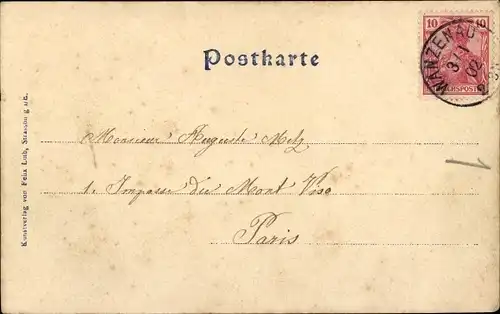 10 10
REICHSPOST
WANZENAU
02
Postkarte
Monsieur Auguste Metz
1. Impasse du Mont Viso
Paris
Kunstverlag von Felix Luib, Strassburg i/E.